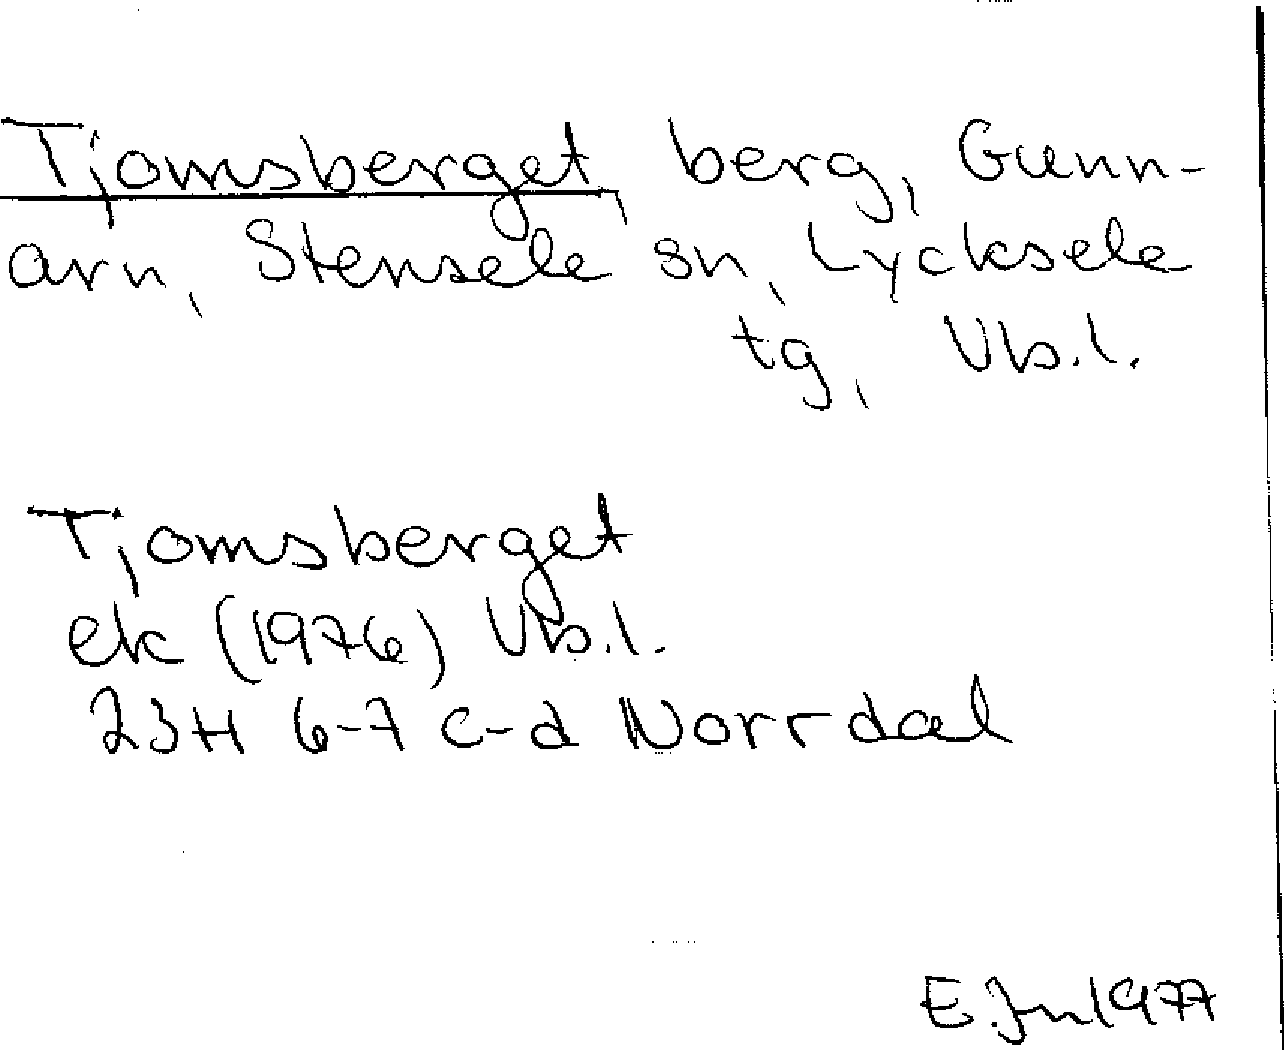 Tjomsberget, berg, Gunn-
arn, Stensele sn, Lycksele
tg, Vb.l.
Tjomsberget
ek (1976) Vb.l.
23H 6-7 c-d Norrdal
E. Jn 1977